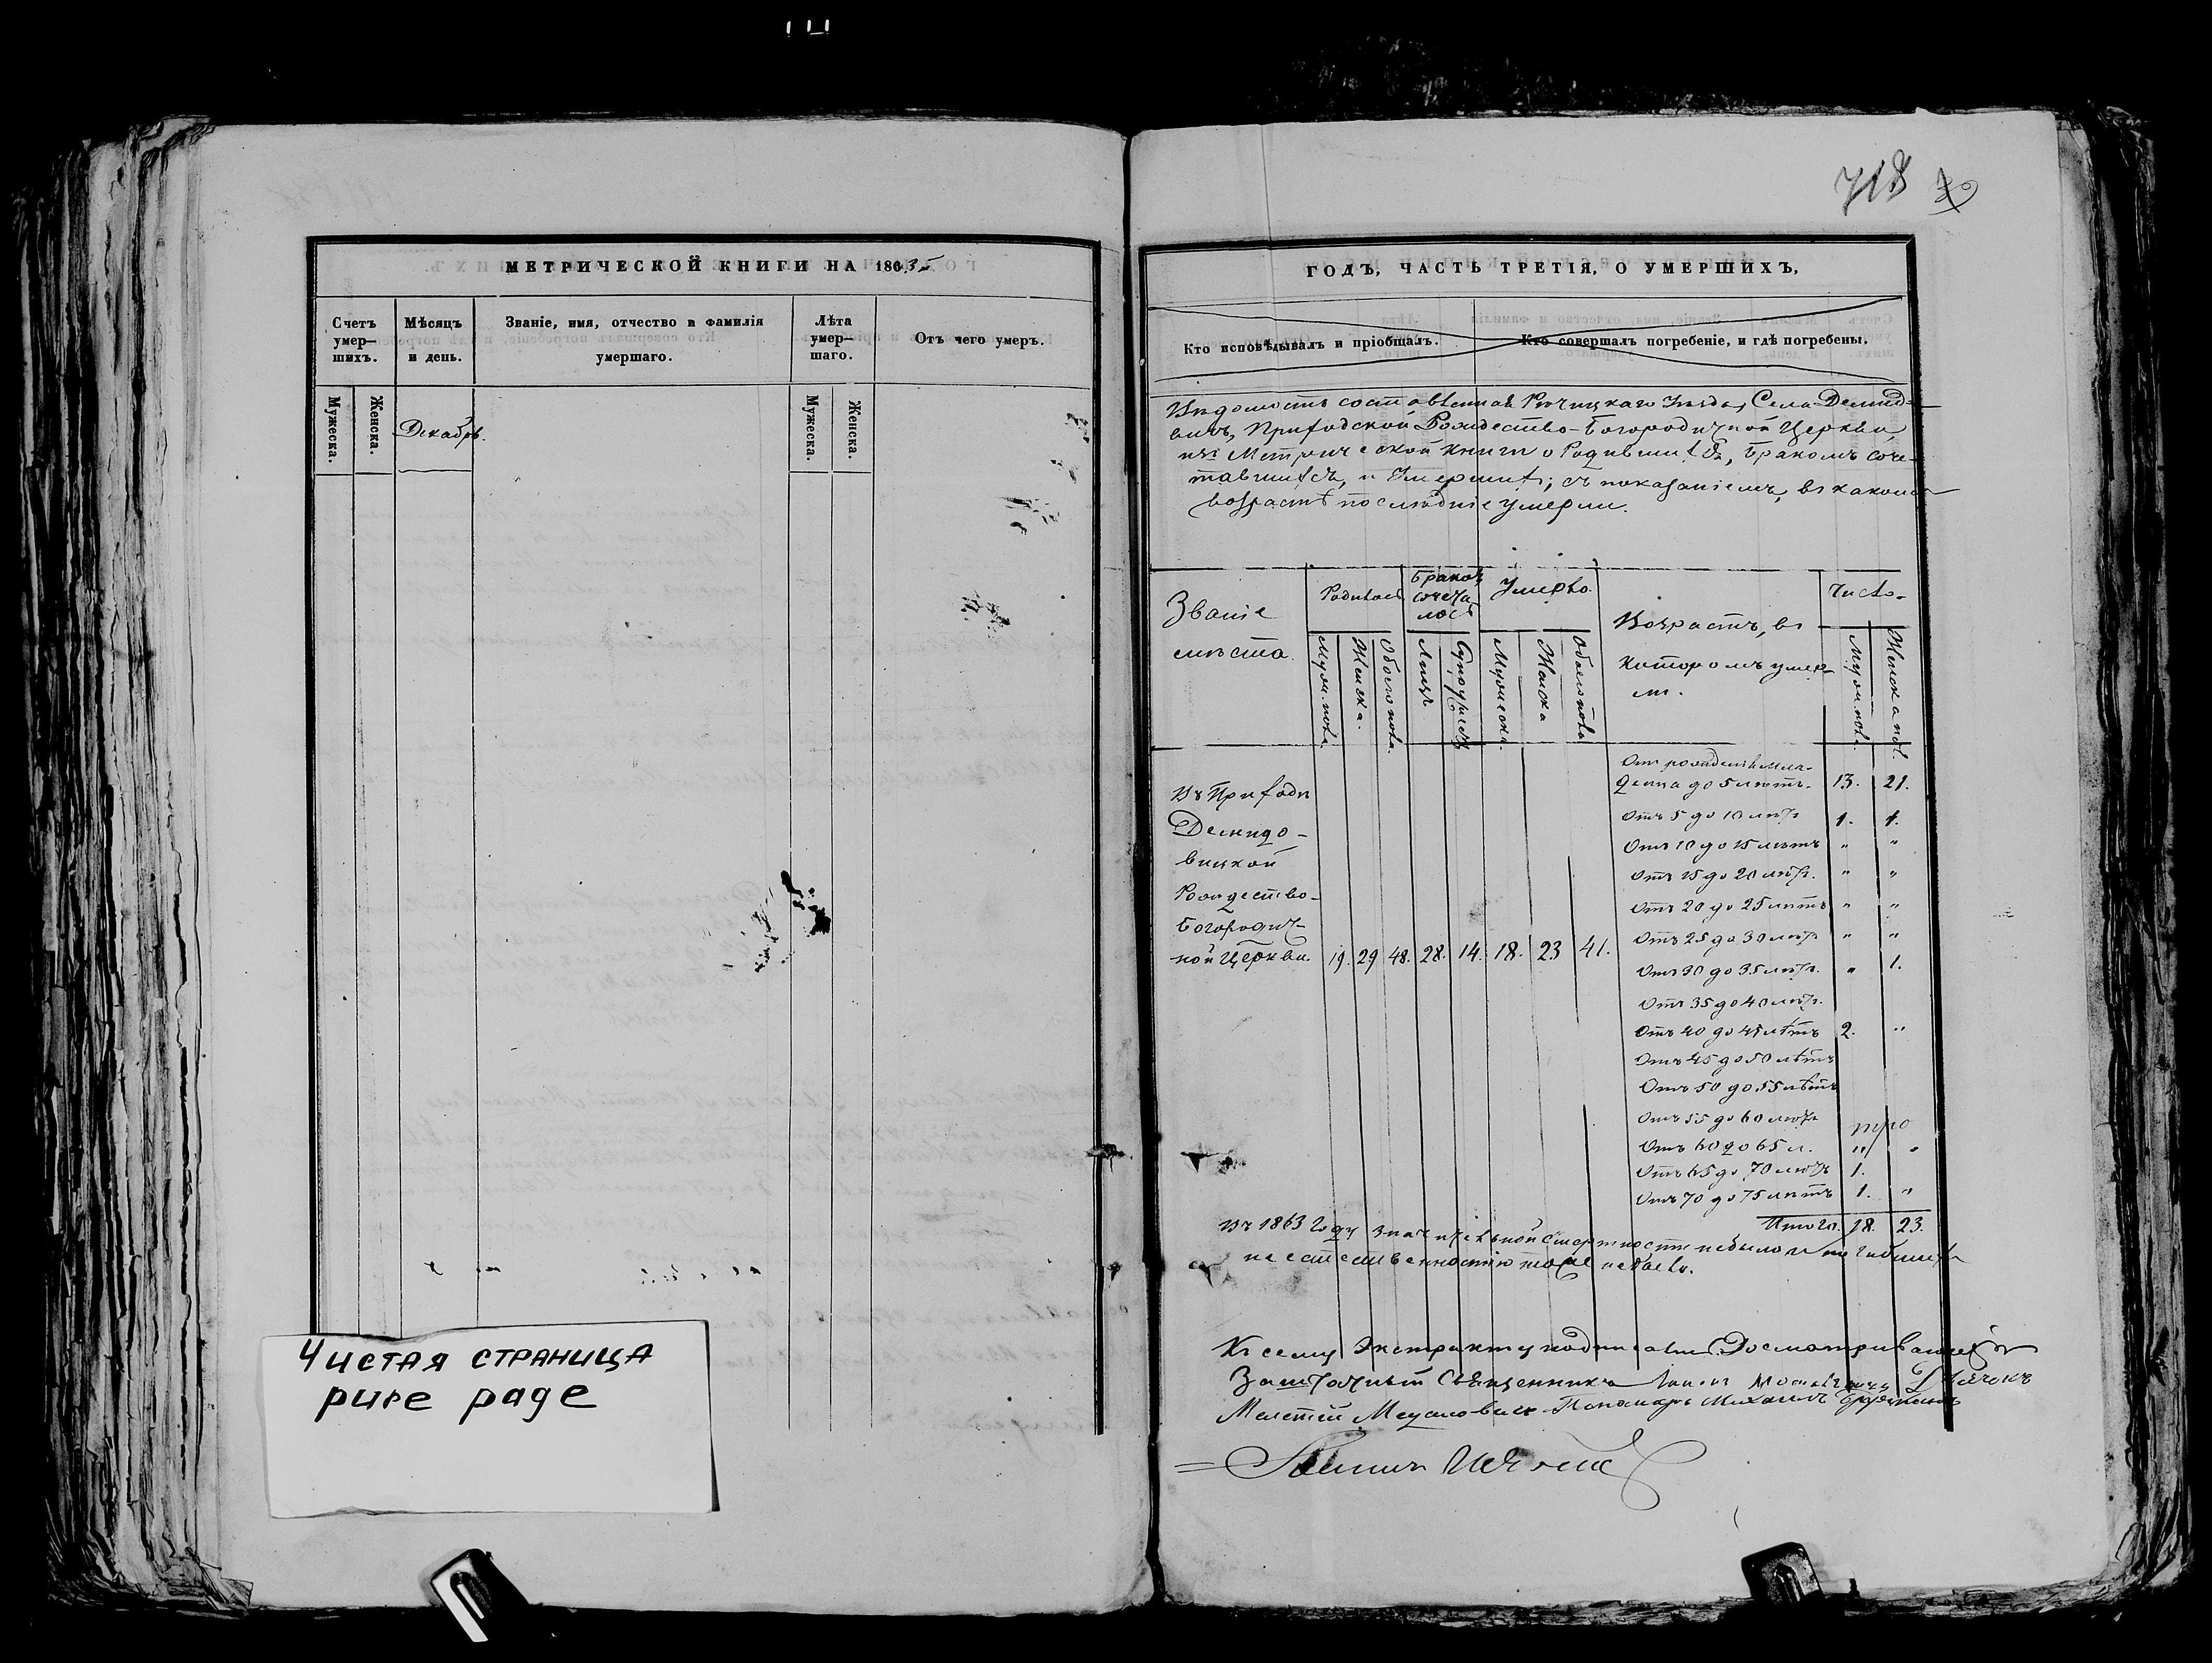 718
МЕТРИЧЕСКОЙ КНИГИ НА 1863
Счетъ умер—шихъ.
Мѣсяцъ и день.
Званіе, имя, отчество и фамилія умершаго.
Лѣта умер—шаго.
Отъ чего умеръ.
Мужеска.
Женска.
Декабрь.
Мужеска.
Женска.
Чистая страница
pure page
ГОДЪ, ЧАСТЬ ТРЕТІЯ, О УМЕРШИХЪ,
Кто исповѣдывалъ и пріобщалъ.
Кто совершалъ погребеніе, и гдѣ погребены.
Вѣдомость составленная Рѣчицкаго Уѣзда, Села Демид-
вичъ, Приходской Рождество-Богородичной Церкви,
изъ Метрической книги о Родившихся, бракомъ соче-
тавшихся, и Умершихъ; съ показаніемъ, въ какомъ
возрастѣ послѣдніе умерли.
Званіе
мѣста.
Родилось
Браком сочеталось
Умерло.
Возрастъ, въ
которомъ умер-
ли.
Число.
Муж. пола.
Женска.
Обоего пола.
Лицъ
Супружес
Мужеска.
Женска
Обоего пола
Муж. пола.
Женска пол.
Въ Приходѣ
Демидо-
вицкой
Рождество-
Богородич-
ной Церкви. 19. 29 48. 28. 14. 18. 23 41.
Отъ рожденія мла-
денца до 5 лѣтъ. 13. 21.
Отъ 5 до 10 лѣтъ 1. 1.
Отъ 10 до 15 лѣтъ " "
Отъ 15 до 20 лѣтъ. " "
Отъ 20 до 25 лѣтъ " "
Отъ 25 до 30 лѣтъ " "
Отъ 30 до 35 лѣтъ. " 1.
Отъ 35 до 40 лѣтъ.
Отъ 40 до 45 лѣтъ 2. "
Отъ 45 до 50 лѣтъ
Отъ 50 до 55 лѣтъ
Отъ 55 до 60 лѣтъ
Отъ 60 до 65 л. " "
Отъ 65 до 70 лѣтъ 1.
Отъ 70 до 75 лѣтъ 1. "
Итого. 18. 23.
Въ 1863 году значительной смертности небыло и
не естественностію тоже небыло.
Къ сему Экстракту подписались: Досматривающій
Заштатный Священникъ Дьячокъ
Пономарь Михаилъ